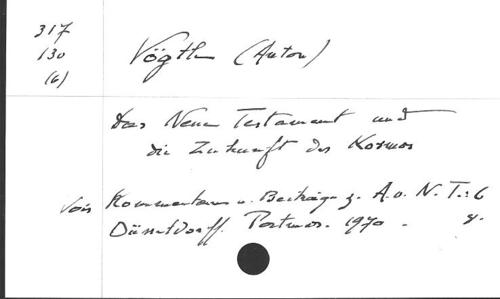 317
130
(6)
Vögtle (Anton)
Das Neue Testament und
die Zukunft des Kosmos
Vois Kommentare u. Beiträge z. A. u. N. T.: 6
Düsseldorff. Patmos. 1970.